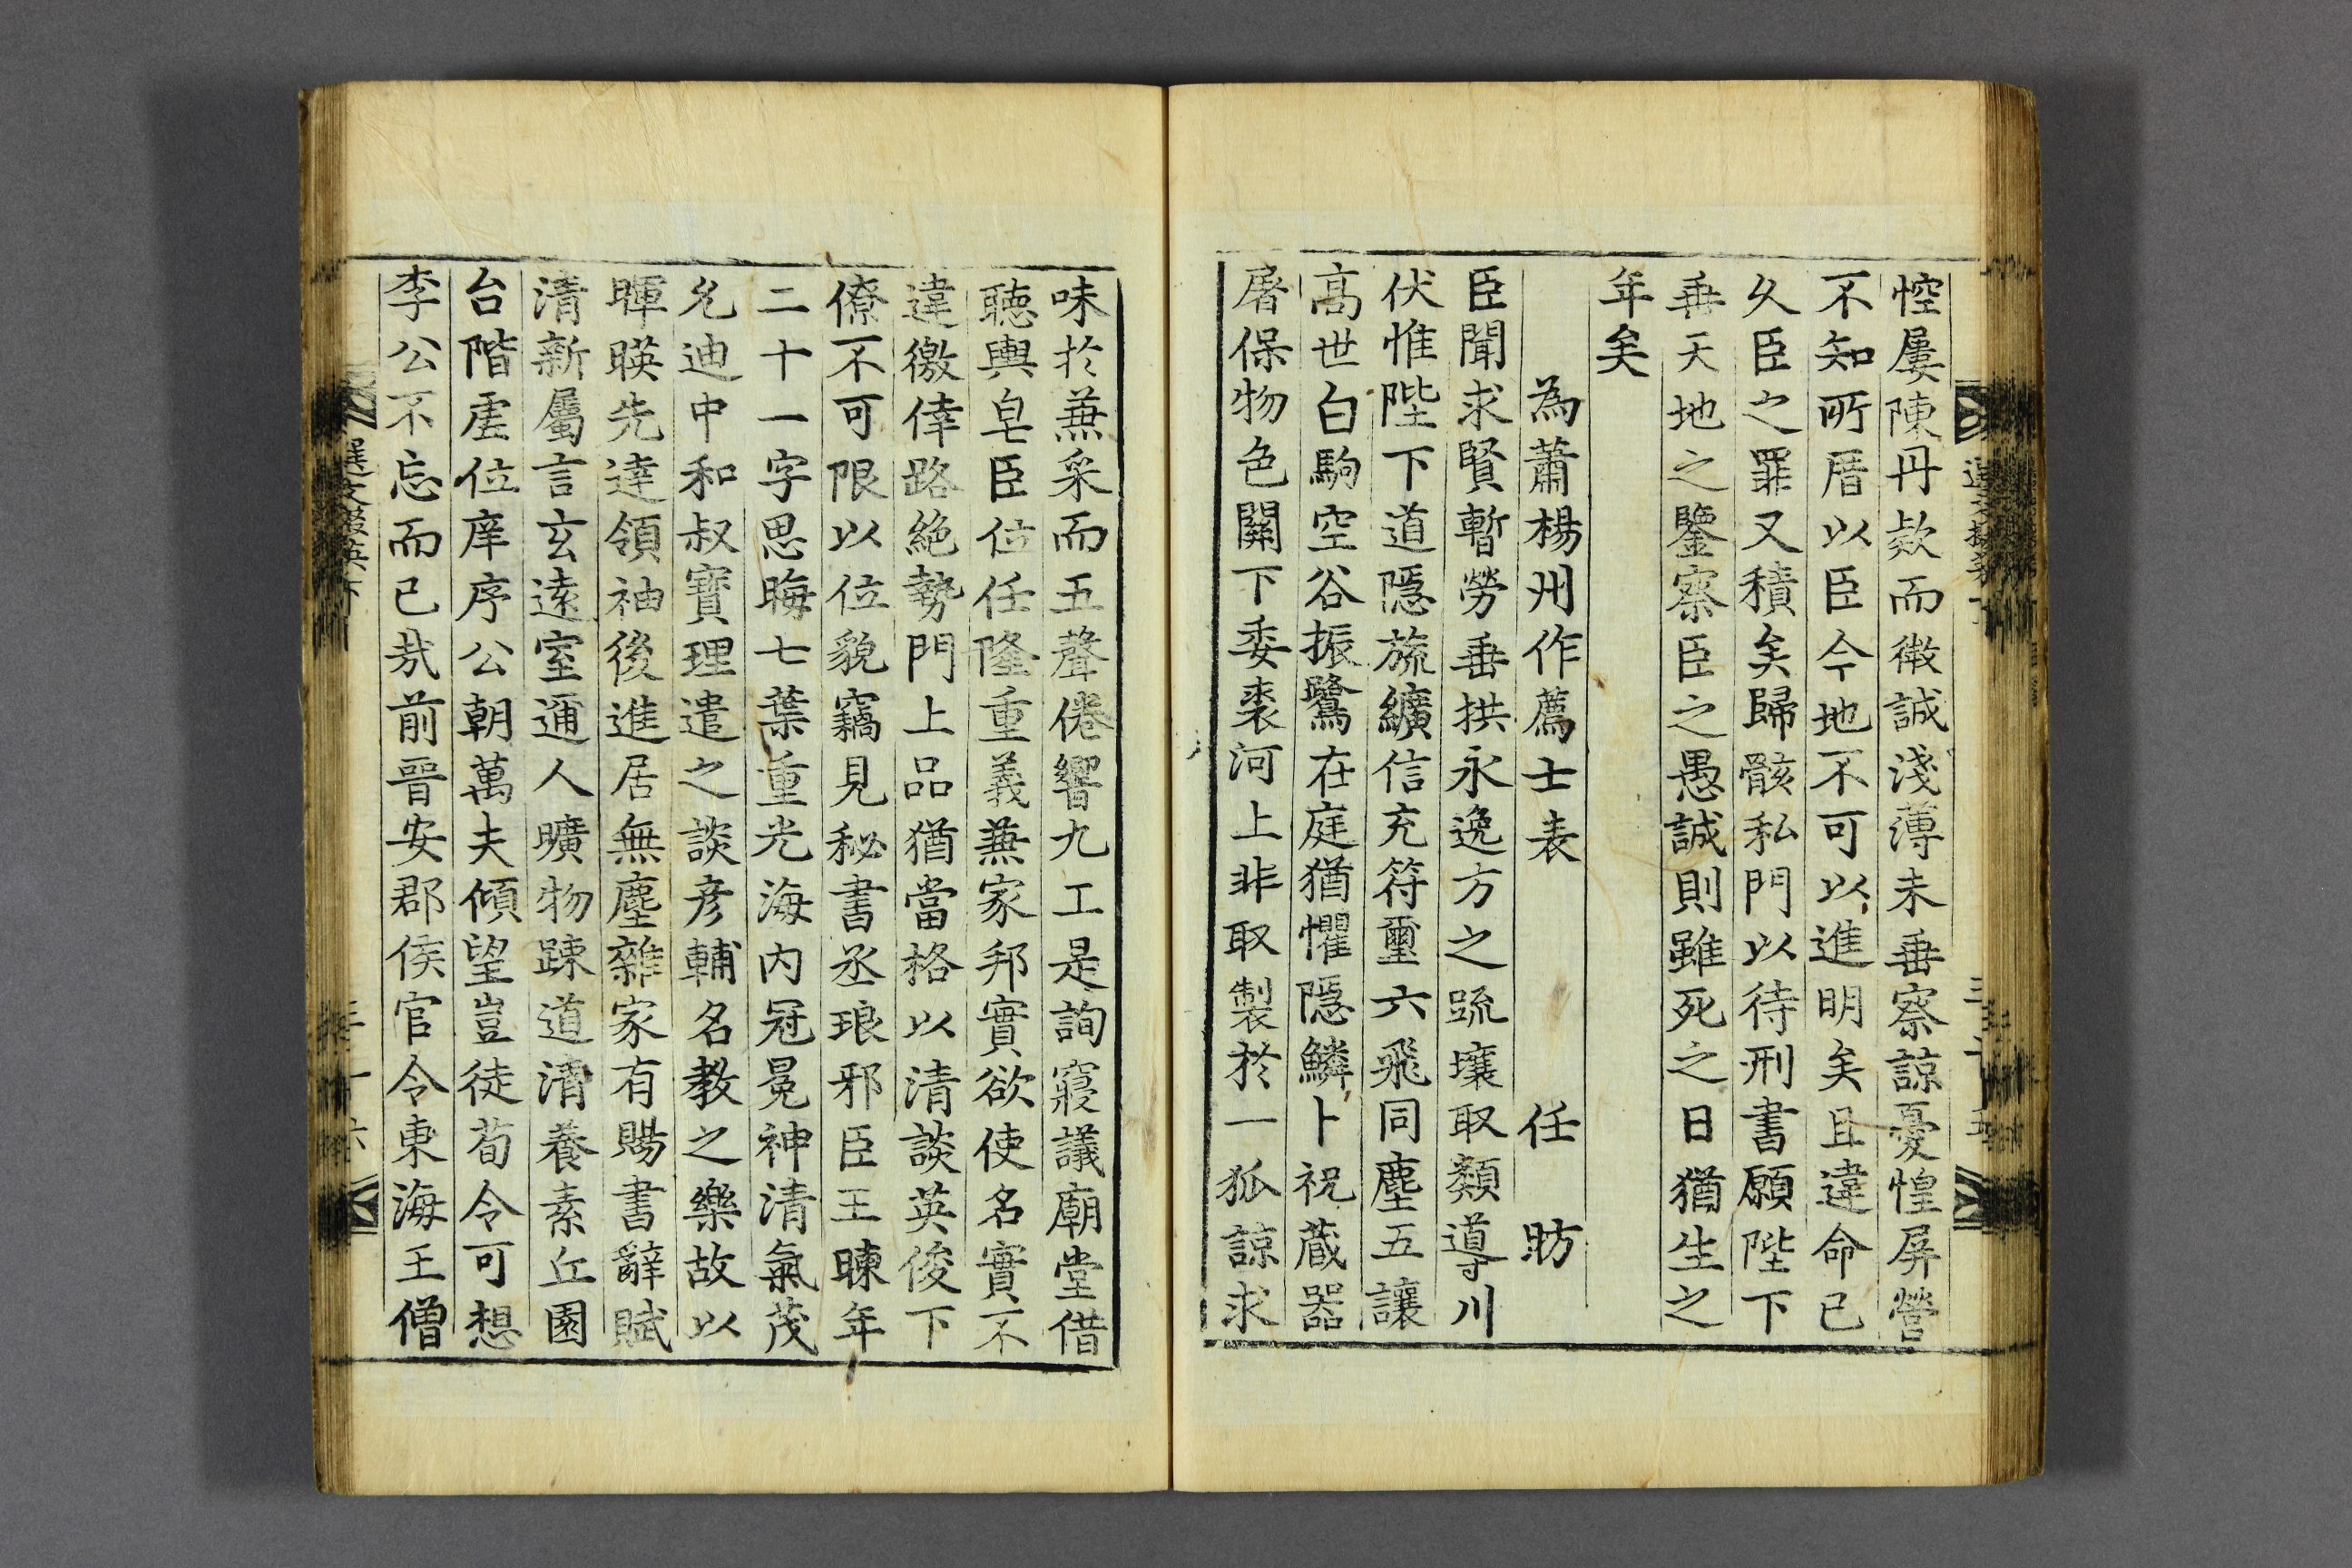 悾屢陳丹欵而微誠淺薄未垂察諒憂惶屏營
不知所厝以臣今地不可以進明矣且違命已
久臣之罪又積矣歸骸私門以待刑書願陛下
垂天地之鑒察臣之愚誠則雖死之日猶生之
年矣
為蕭楊州作薦士表 任 昉
臣聞求賢暫勞垂拱永逸方之疏壤取類導川
伏惟陛下道隱旒纊信充符璽六飛同塵五讓
高世白駒空谷振鷺在庭猶懼隱鱗卜祝蔵器
屠保物色關下委裘河上非取製於一狐諒求
味於蕪采而五聲倦響九工是詢寢議廟堂借
聽輿皂臣位任隆重義蕪家邦實欲使名實不
違徼倖路絶勢門上品猶當格以清談英俊下
僚不可限以位貌竊見秘書丞琅邪臣王暕年
二十一字思晦七葉重光海内冠冕神清氣茂
允迪中和叔寶理遣之談彦輔名教之樂故以
暉暎先達領袖後進居無塵雜家有賜書辭賦
清新屬言玄遠室邇人曠物踈道清養素丘園
台階虚位庠序公朝萬夫傾望豈徒荀令可想
李公不忘而已㢤前晉安郡侯官令東海王僧
選文掇英下